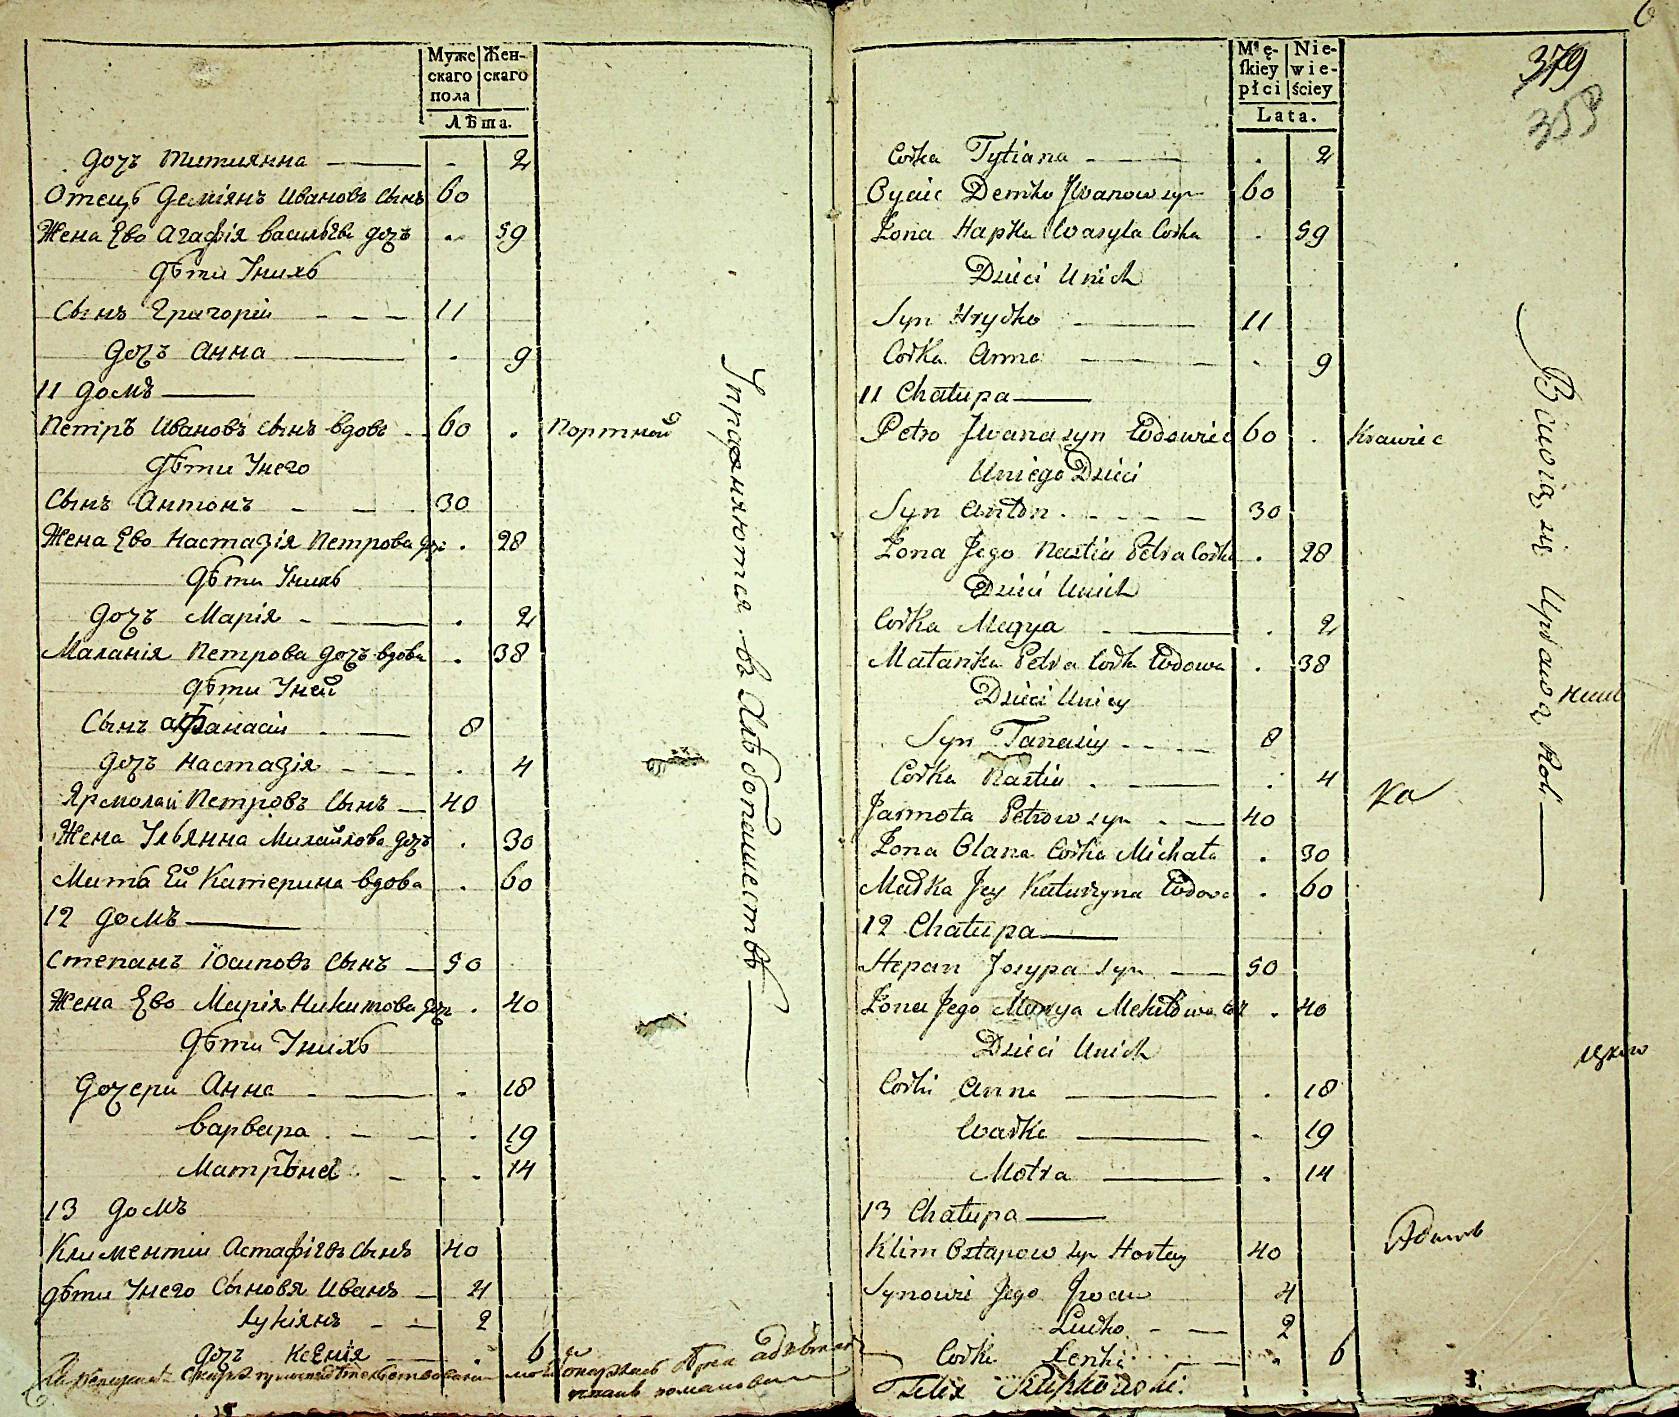 Муже Жен-
скаго скаго
пола
Лѣта.
дочь Титиянна 2
Отецъ Демiянъ Ивановъ сынъ 60
Жена Ево Агафiя васильева дочь 59
дѣти Унихъ
Сынъ Григорiй 11
дочь Анна 9
11 домъ
Петръ Ивановъ сынъ вдовъ 60 портной
дѣти Унего
Сынъ Антонъ 30
Жена Ево Настазiя Петрова доч 28
дѣти Унихъ
дочь Марiя 2
Маланiя Петрова дочь вдова 38
дѣти Уней
Сынъ афанасiй 8
дочь Настазiя 4
Ярмолай Петровъ Сынъ 40
Жена Ульянна Михайлова дочь 30
Мать Ей Катерина вдова 60
12 домъ
Степанъ Iосиповъ Сынъ 50
Жена Ево Марiя Никитова доч 40
дѣти Унихъ
дочери Анна 18
варвара 19
Матрѣна 14
13 домъ
Климентiй Астафiевъ сынъ 40
дѣти Унего Сыновя Иванъ 4
Лукiянъ 2
дочь Ксенiя 6
Упражняются въ Хлѣбопашествѣ
Męs- Nie-
skiey wie-
płci ściey
Lata.
379
353
6
Corka Tytiana 2
Oyciec Demko Jwanow syn 60
Zona Hapka Wasyla Corka 59
Dzieci Unich
Syn Hryćko 11
Corka Anna 9
11 Chałupa
Petro Jwana syn Wdowiec 60 Krawiec
Uniego Dzieci
Syn Anton 30
Zona Jego Nastia Petra Corka 28
Dzieci Unich
Corka Marya 2
Małanka Petra Corka Wdowa 38
Dzieci Uniey
Syn Tanasiy 8
Corka Nastia 4
Jarmoła Petrow syn 40
Zona Olana Corka Michała 30
Matka Jey Katarzyna Wdowa 60
12 Chałupa
Stepan Josypa syn 50
Zona Jego Marya Mekitowa Cor 40
Dzieci Unich
Corki Anna 18
Warka 19
Motra 14
13 Chałupa
Klim Ostapow syn Hortay 40
Synowie Jego Jwan 4
Lucko 2
Corka Xenka 6
Bawią się Uprawą Roli
ка
Адамъ